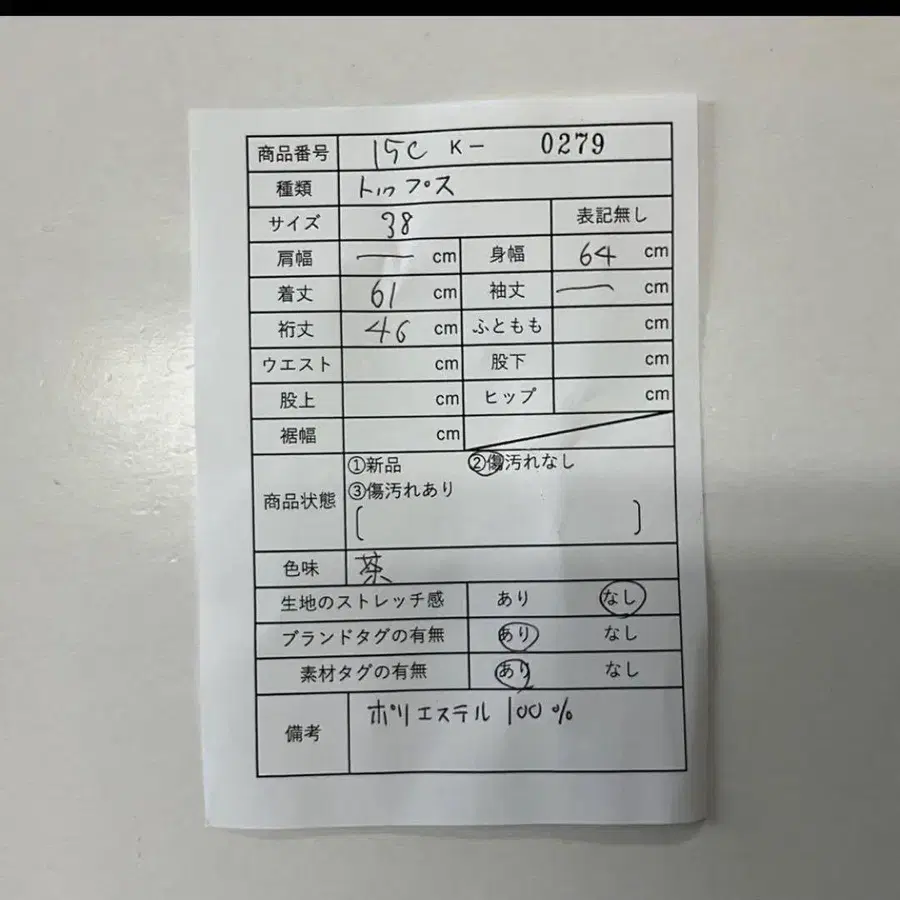 商品番号 15C K- 0279
種類 トップス
サイズ 38 表記無し
肩幅 — cm 身幅 64 cm
着丈 61 cm 袖丈 — cm
裄丈 46 cm ふともも cm
ウエスト cm 股下 cm
股上 cm ヒップ cm
裾幅 cm
①新品 ②傷汚れなし
③傷汚れあり
商品状態 [ ]
色味 茶
生地のストレッチ感 あり なし
ブランドタグの有無 あり なし
素材タグの有無 あり なし
備考 ポリエステル 100%